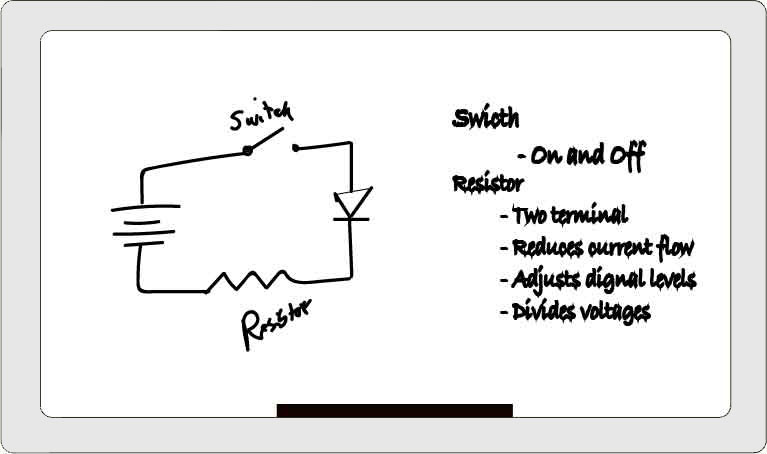 Switch
Resistor
Swicth
- On and Off
Resistor
- Two terminal
- Reduces current flow
- Adjusts dignal levels
- Divides voltages